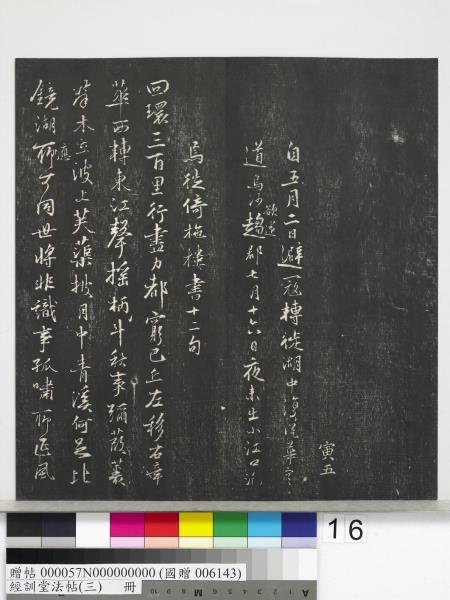 寅五
自五月二日避寇轉徙湖中復從華容
道烏沙趨郡七月十六日夜半出小江口宿
欲還
焉徙倚柂樓書十二句
回環三百里行盡力都窮巴丘左移右章
華西轉東江聲搖柄斗秋事彌葭叢
草木立波上芙蕖披月中青溪何足比
鏡湖聊可同世將非識事孤嘯聊延風
應
16
贈帖 000057N000000000 (國贈 006143)
經訓堂法帖(三) 冊